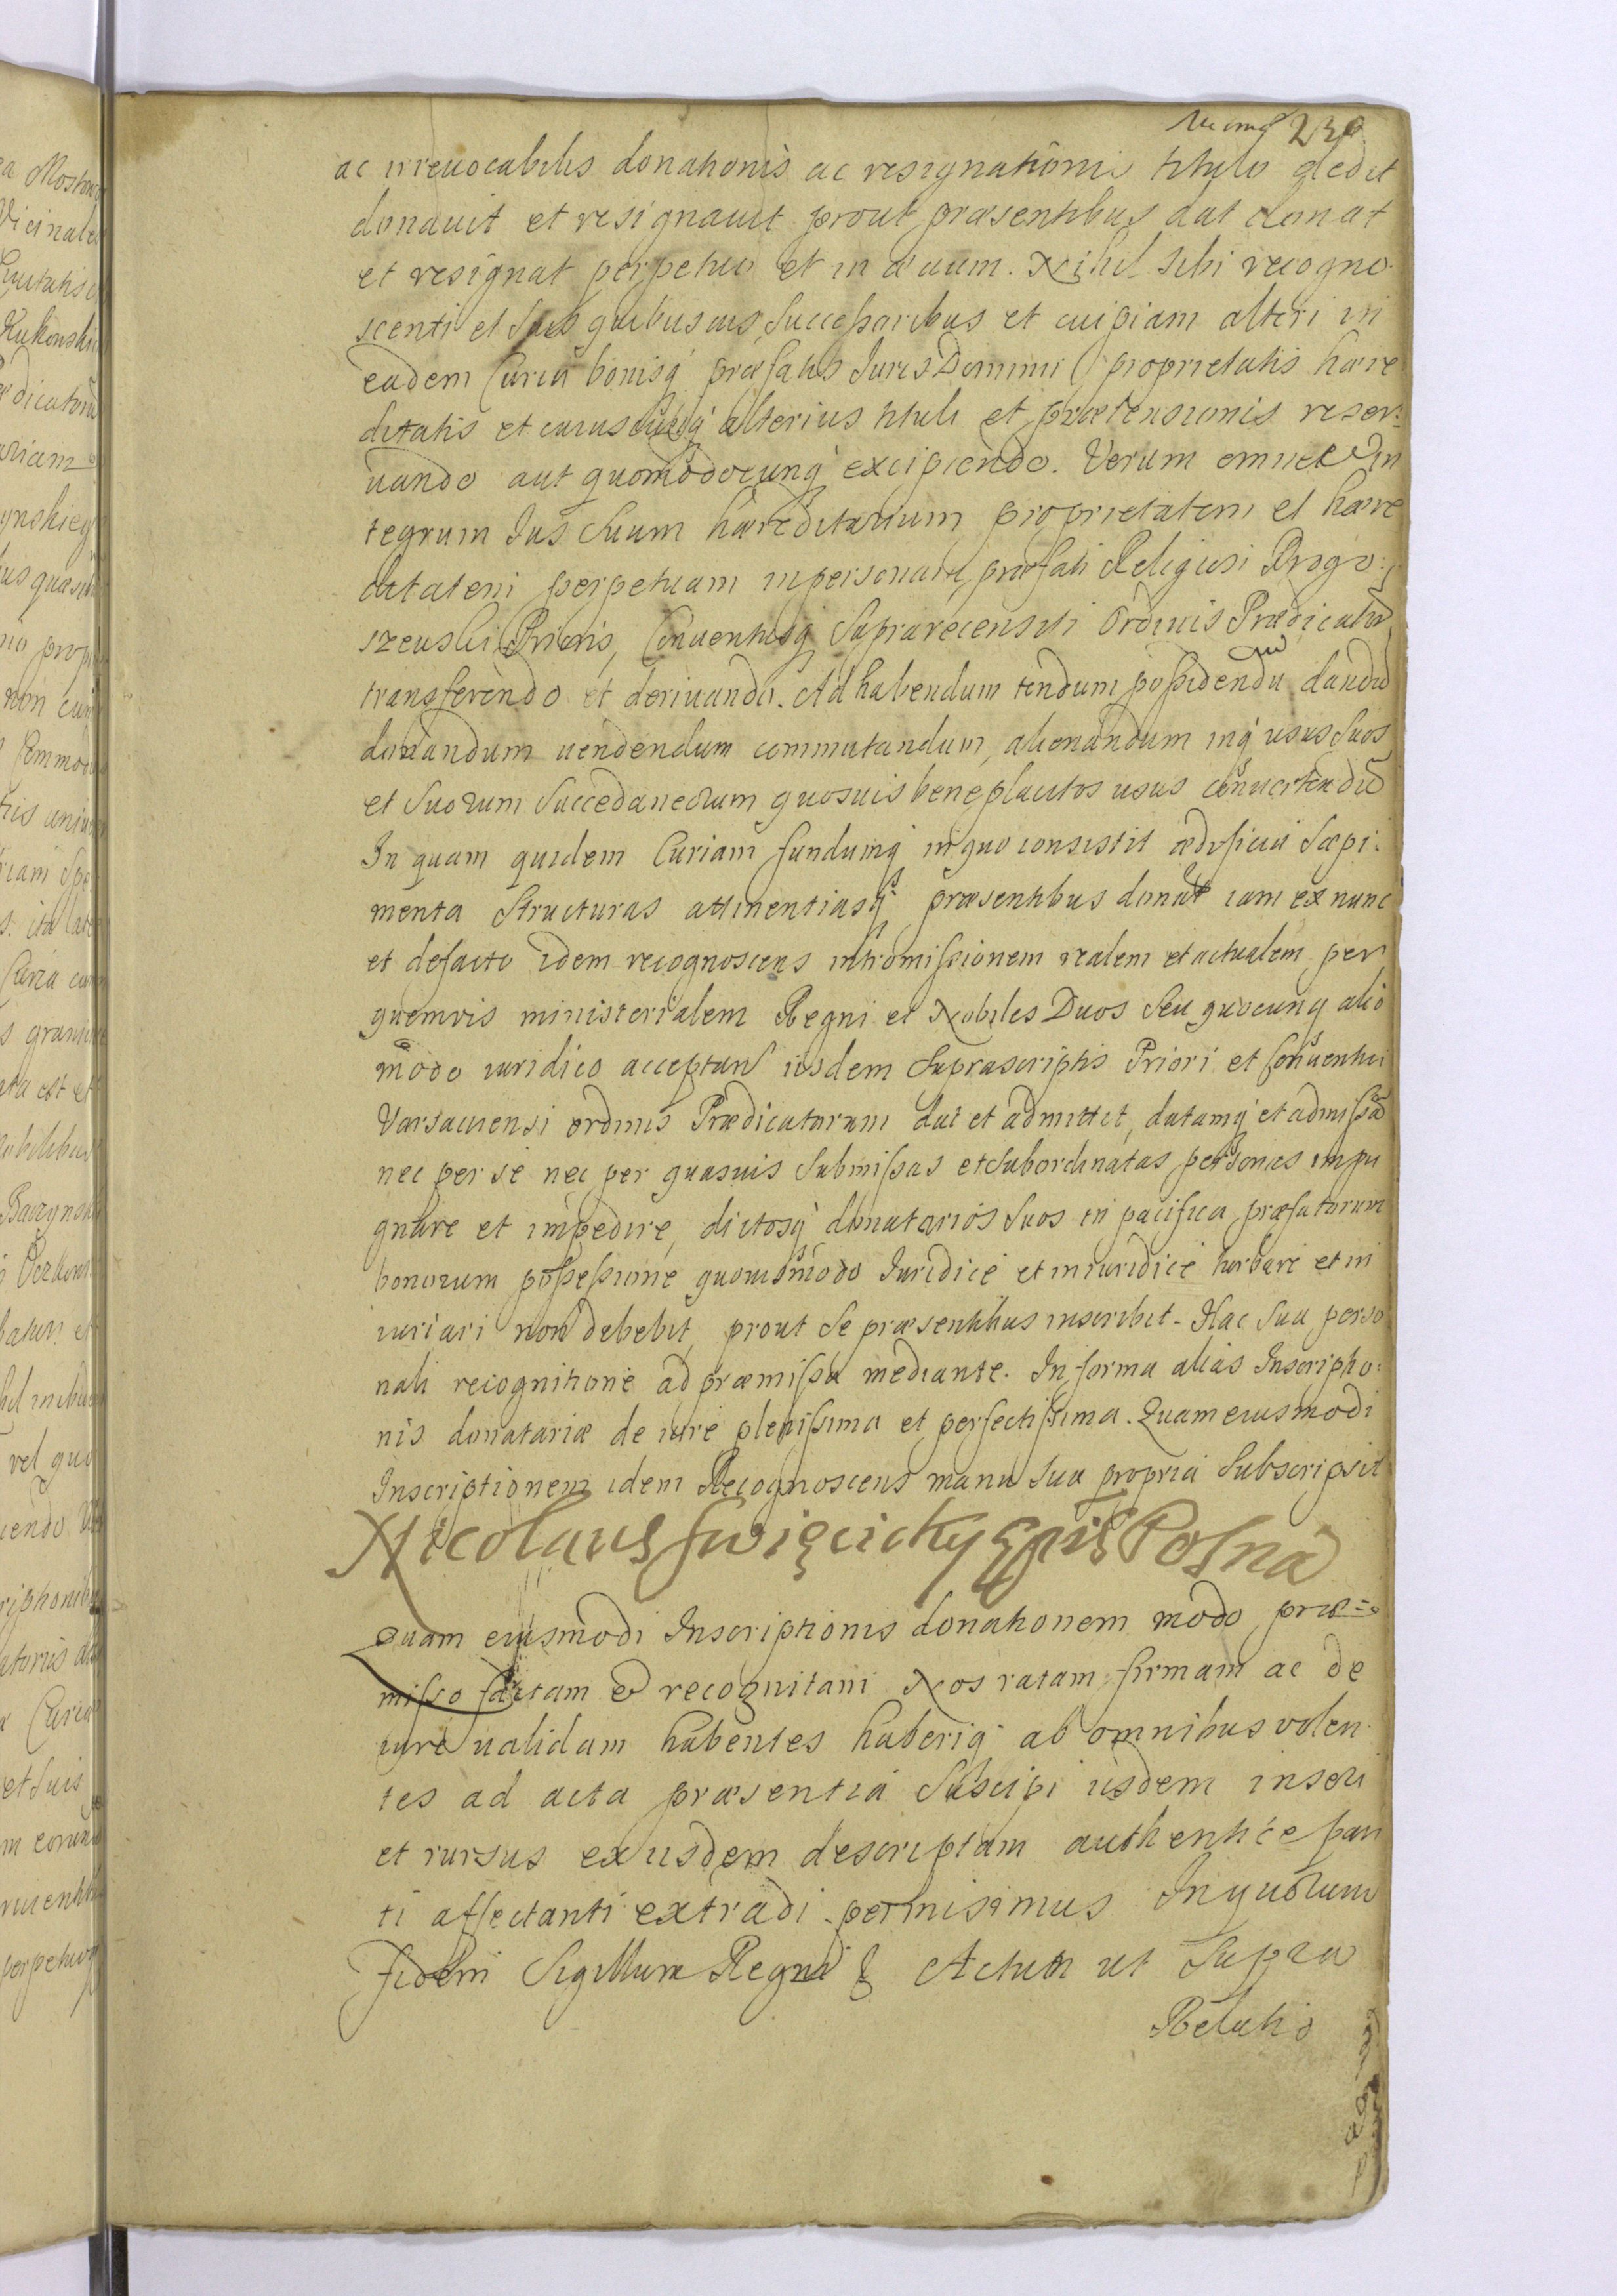 230
ac irreuocabilis donationis ac resignationis titulo dedit
donauit et resignauit prout præsentibus dat donat
et resignat perpetuo et in æuum. Nihil sibi recogno-
scenti et suis quibusuis successoribus et cuipiam alteri in
eadem Curia bonisq præfatis Juris Dominii proprietatis hære
ditatis et cuiuscunq alterius tituli et prætensionis reser-
uando aut quomodocunq excipiendo. Verum omne et in
tegrum Jus suum hæreditarium proprietatem et hære
ditatem perpetuam in personam præfati Religiosi
Prioris, Conuentusq suprarecensiti Ordinis Prædicator
transferendo et deriuando. Ad habendum tendum possidendu dandu
donandum uendendum commutandum, alienandum inq usus suos
et suorum succedaneorum quosuis beneplacitos usus conuertendu
In quam quidem Curiam fundumq in quo consistit ædificia sæpi:
menta structuras attinentiasq præsentibus donat iam ex nunc
et defacto idem recognoscens intromissionem realem et actualem per
quemvis ministerialem Regni et Nobiles Duos seu quocunq alio
modo iuridico acceptan iisdem suprascriptis Priori et Conuentui
Varsauiensi ordinis Prædicatorum dat et admittit, datamq et admissa
nec per se nec per quasuis submissas et subordinatas personas impu
gnare et impedire, dictosq donatarios suos in pacifica præfatorum
bonorum possessione quouismodo Juridicè et iniuridicè turbare et in
iuriari non debebit, prout se præsentibus inscribit. Hac sua perso
nali recognitione ad præmissa mediante. In forma alias Inscriptio:
nis donatariæ de iure plenissima et perfectissima. Quam eiusmodi
Inscriptionem idem Recognoscens manu sua propria subscripsit
Nicolaus Swięcicky Epis Posna
Quam eiusmodi Inscriptionis donationem modo præ=
misso factam & recognitam Nos ratam firmam ac de
iure ualidam habentes haberiq ab omnibus volen
tes ad acta præsentia suscipi iisdem inseri
et rursus ex iisdem descriptam authenticè par
ti affectanti extradi permisimus In quorum
fidem Sigillum Regni & Actum ut supra
Relatio